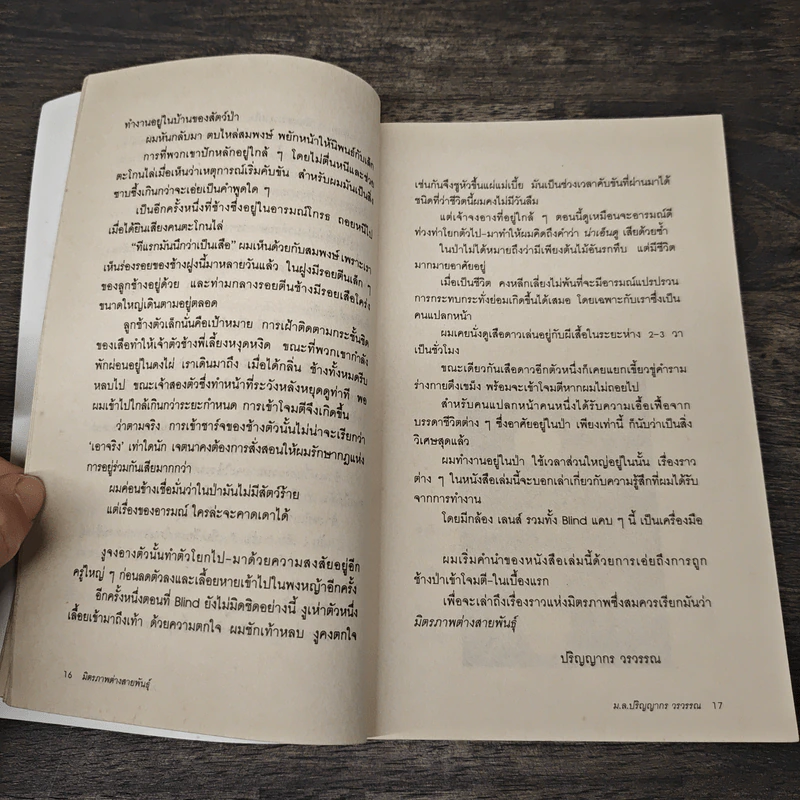 ทำงานอยู่ในบ้านของสัตว์ป่า
ผมหันกลับมา ตบไหล่สมพงษ์ พยักหน้าให้นิพนธ์กับเล็ก
การที่พวกเขาปักหลักอยู่ใกล้ ๆ โดยไม่ตื่นหนีและช่วย
ตะโกนไล่เมื่อเห็นว่าเหตุการณ์เริ่มคับขัน สำหรับผมมันเป็นสิ่ง
ซาบซึ้งเกินกว่าจะเอ่ยเป็นคำพูดใด ๆ
เป็นอีกครั้งหนึ่งที่ช้างซึ่งอยู่ในอารมณ์โกรธ ถอยหนีไป
เมื่อได้ยินเสียงคนตะโกนไล่
“ทีแรกมันนึกว่าเป็นเสือ” ผมเห็นด้วยกับสมพงษ์ เพราะเรา
เห็นร่องรอยของช้างฝูงนี้มาหลายวันแล้ว ในฝูงมีรอยตีนเล็ก ๆ
ของลูกช้างอยู่ด้วย และท่ามกลางรอยตีนช้างมีรอยเสือโคร่ง
ขนาดใหญ่เดินตามอยู่ตลอด
ลูกช้างตัวเล็กนั่นคือเป้าหมาย การเฝ้าติดตามกระชั้นชิด
ของเสือทำให้เจ้าตัวช้างพี่เลี้ยงหงุดหงิด ขณะที่พวกเขากำลัง
พักผ่อนอยู่ในดงไผ่ เราเดินมาถึง เมื่อได้กลิ่น ช้างทั้งหมดรีบ
หลบไป ขณะเจ้าสองตัวซึ่งทำหน้าที่ระวังหลังหยุดดูท่าที พอ
ผมเข้าไปใกล้เกินกว่าระยะกำหนด การเข้าโจมตีจึงเกิดขึ้น
ว่าตามจริง การเข้าชาร์จของช้างตัวนั้นไม่น่าจะเรียกว่า
‘เอาจริง’ เท่าใดนัก เจตนาคงต้องการสั่งสอนให้ผมรักษากฎแห่ง
การอยู่ร่วมกันเสียมากกว่า
ผมค่อนข้างเชื่อมั่นว่าในป่ามันไม่มีสัตว์ร้าย
แต่เรื่องของอารมณ์ ใครล่ะจะคาดเดาได้
งูจงอางตัวนั้นทำตัวโยกไป-มาด้วยความสงสัยอยู่อีก
ครู่ใหญ่ ๆ ก่อนลดตัวลงและเลื้อยหายเข้าไปในพงหญ้าอีกครั้ง
อีกครั้งหนึ่งตอนที่ Blind ยังไม่มิดชิดอย่างนี้ งูเห่าตัวหนึ่ง
เลื้อยเข้ามาถึงเท้า ด้วยความตกใจ ผมชักเท้าหลบ งูคงตกใจ
16 มิตรภาพต่างสายพันธุ์
เช่นกันจึงชูหัวขึ้นแผ่แม่เบี้ย มันเป็นช่วงเวลาคับขันที่ผ่านมาได้
ชนิดที่ว่าชีวิตนี้ผมคงไม่มีวันลืม
แต่เจ้าจงอางที่อยู่ใกล้ ๆ ตอนนี้ดูเหมือนจะอารมณ์ดี
ท่วงท่าโยกตัวไป-มาทำให้ผมคิดถึงคำว่า น่าเอ็นดู เสียด้วยซ้ำ
ในป่าไม่ได้หมายถึงว่ามีเพียงต้นไม้อันรกทึบ แต่มีชีวิต
มากมายอาศัยอยู่
เมื่อเป็นชีวิต คงหลีกเลี่ยงไม่พ้นที่จะมีอารมณ์แปรปรวน
การกระทบกระทั่งย่อมเกิดขึ้นได้เสมอ โดยเฉพาะกับเราซึ่งเป็น
คนแปลกหน้า
ผมเคยนั่งดูเสือดาวเล่นอยู่กับผีเสื้อในระยะห่าง 2-3 วา
เป็นชั่วโมง
ขณะเดียวกันเสือดาวอีกตัวหนึ่งก็เคยแยกเขี้ยวขู่คำราม
ร่างกายตึงเขม็ง พร้อมจะเข้าโจมตีหากผมไม่ถอยไป
สำหรับคนแปลกหน้าคนหนึ่งได้รับความเอื้อเฟื้อจาก
บรรดาชีวิตต่าง ๆ ซึ่งอาศัยอยู่ในป่า เพียงเท่านี้ ก็นับว่าเป็นสิ่ง
วิเศษสุดแล้ว
ผมทำงานอยู่ในป่า ใช้เวลาส่วนใหญ่อยู่ในนั้น เรื่องราว
ต่าง ๆ ในหนังสือเล่มนี้จะบอกเล่าเกี่ยวกับความรู้สึกที่ผมได้รับ
จากการทำงาน
โดยมีกล้อง เลนส์ รวมทั้ง Blind แคบ ๆ นี้ เป็นเครื่องมือ
ผมเริ่มคำนำของหนังสือเล่มนี้ด้วยการเอ่ยถึงการถูก
ช้างป่าเข้าโจมตี-ในเบื้องแรก
เพื่อจะเล่าถึงเรื่องราวแห่งมิตรภาพซึ่งสมควรเรียกมันว่า
มิตรภาพต่างสายพันธุ์
ปริญญากร วรวรรณ
ม.ล.ปริญญากร วรวรรณ 17